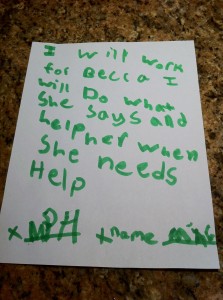 I Will work
for Becca I
will Do what
She Says and
help her when
She needs
Help
x +name